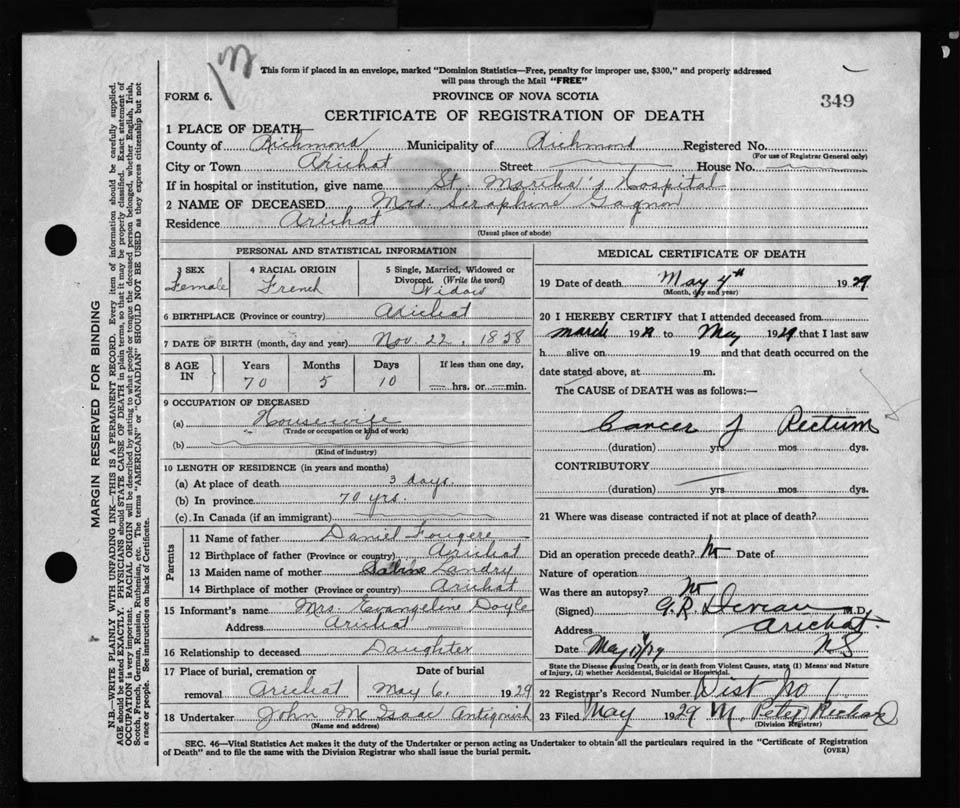 This form if placed in an envelope, marked "Dominion Statistics—Free, penalty for improper use, $300," and properly addressed
will pass through the Mail "FREE"
FORM 6.
PROVINCE OF NOVA SCOTIA
349
CERTIFICATE OF REGISTRATION OF DEATH
1 PLACE OF DEATH—
County of Richmond Municipality of Richmond Registered No.
(For use of Registrar General only)
City or Town Arichat Street House No.
If in hospital or institution, give name St. Martha's Hospital
2 NAME OF DECEASED Mrs. Seraphine Gagnon
Residence Arichat
(Usual place of abode)
PERSONAL AND STATISTICAL INFORMATION
3 SEX 4 RACIAL ORIGIN 5 Single, Married, Widowed or
Divorced. (Write the word)
Female French Widow
6 BIRTHPLACE (Province or country) Arichat
7 DATE OF BIRTH (month, day and year) Nov. 22, 1858
8 AGE IN Years Months Days If less than one day,
70 5 10 hrs. or min.
9 OCCUPATION OF DECEASED
(a) Housewife
(Trade or occupation or kind of work)
(b)
(Kind of industry)
10 LENGTH OF RESIDENCE (in years and months)
(a) At place of death 3 days.
(b) In province 70 yrs.
(c) In Canada (if an immigrant)
Parents
11 Name of father Daniel Fougere
12 Birthplace of father (Province or country) Arichat
13 Maiden name of mother Landry
14 Birthplace of mother (Province or country) Arichat
15 Informant's name Mrs. Evangeline Doyle
Address Arichat
16 Relationship to deceased Daughter
17 Place of burial, cremation or Date of burial
removal Arichat May 6, 1929
18 Undertaker John Mc Isaac Antigonish
(Name and address)
MEDICAL CERTIFICATE OF DEATH
19 Date of death May 4th 1929
(Month, day and year)
20 I HEREBY CERTIFY that I attended deceased from
March 19 to May 1929 that I last saw
h alive on 19 and that death occurred on the
date stated above, at m.
The CAUSE of DEATH was as follows:—
Cancer of Rectum
(duration) yrs. mos. dys.
CONTRIBUTORY
(duration) yrs mos. dys.
21 Where was disease contracted if not at place of death?
Did an operation precede death? No Date of
Nature of operation
Was there an autopsy? No
(Signed) G. R. M.D.
Address Arichat
N.S
Date May
State the Disease causing Death, or in death from Violent Causes, state (1) Means and Nature
of Injury, (2) whether Accidental, Suicidal or Homicidal.
22 Registrar's Record Number Dist No 1
23 Filed May 1929 M. Peter Richard
(Division Registrar)
SEC. 46—Vital Statistics Act makes it the duty of the Undertaker or person acting as Undertaker to obtain all the particulars required in the "Certificate of Registration
of Death" and to file the same with the Division Registrar who shall issue the burial permit.
(OVER)
MARGIN RESERVED FOR BINDING
N.B.—WRITE PLAINLY WITH UNFADING INK—THIS IS A PERMANENT RECORD. Every item of information should be carefully supplied.
AGE should be stated EXACTLY. PHYSICIANS should STATE CAUSE OF DEATH in plain terms, so that it may be properly classified. Exact statement of
OCCUPATION is very important. RACIAL ORIGIN will be described by stating to what people or tongue the deceased person belonged, whether English, Irish,
Scotch, French, German, Russian, Ruthenian, etc. The terms "AMERICAN" or "CANADIAN" SHOULD NOT BE USED as they express citizenship but not
a race or people. See instructions on back of Certificate.